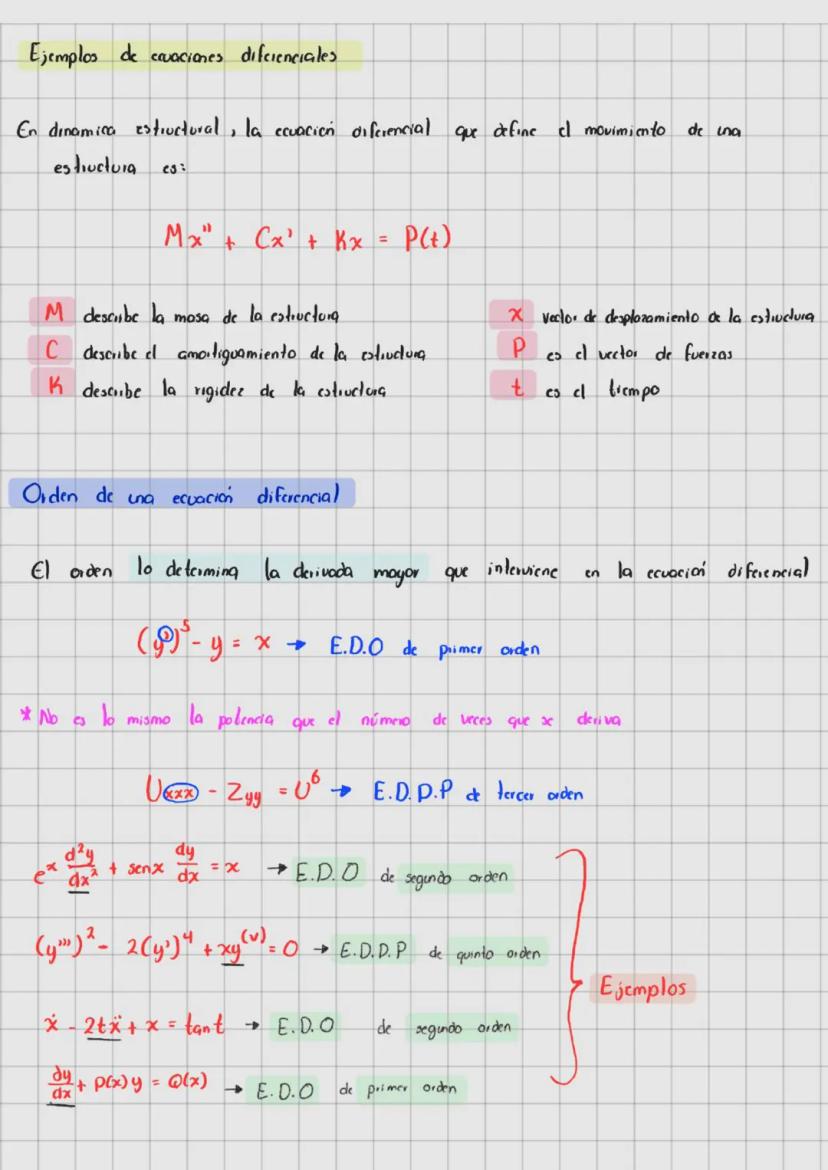 Ejemplos de ecuaciones diferenciales
En dinamica estructural, la ecuación diferencial que define el movimiento de una
estructura es:
Mx'' + Cx' + Kx = P(t)
M describe la masa de la estructura
C describe el amortiguamiento de la estructura
K describe la rigidez de la estructura
x vector de desplazamiento de la estructura
P es el vector de fuerzas
t es el tiempo
Orden de una ecuación diferencial
El orden lo determina la derivada mayor que interviene en la ecuación diferencial
(y')⁵ - y = x → E.D.O de primer orden
* No es lo mismo la potencia que el número de veces que se deriva
Uxxx - Zyy = U⁶ → E.D.D.P de tercer orden
eˣ d²y/dx² + senx dy/dx = x → E.D.O de segundo orden
(y''')² - 2(y')⁴ + xy⁽ᵛ⁾ = 0 → E.D.D.P de quinto orden
ẋ - 2tẍ + x = tant → E.D.O de segundo orden
dy/dx + P(x)y = Q(x) → E.D.O de primer orden
Ejemplos